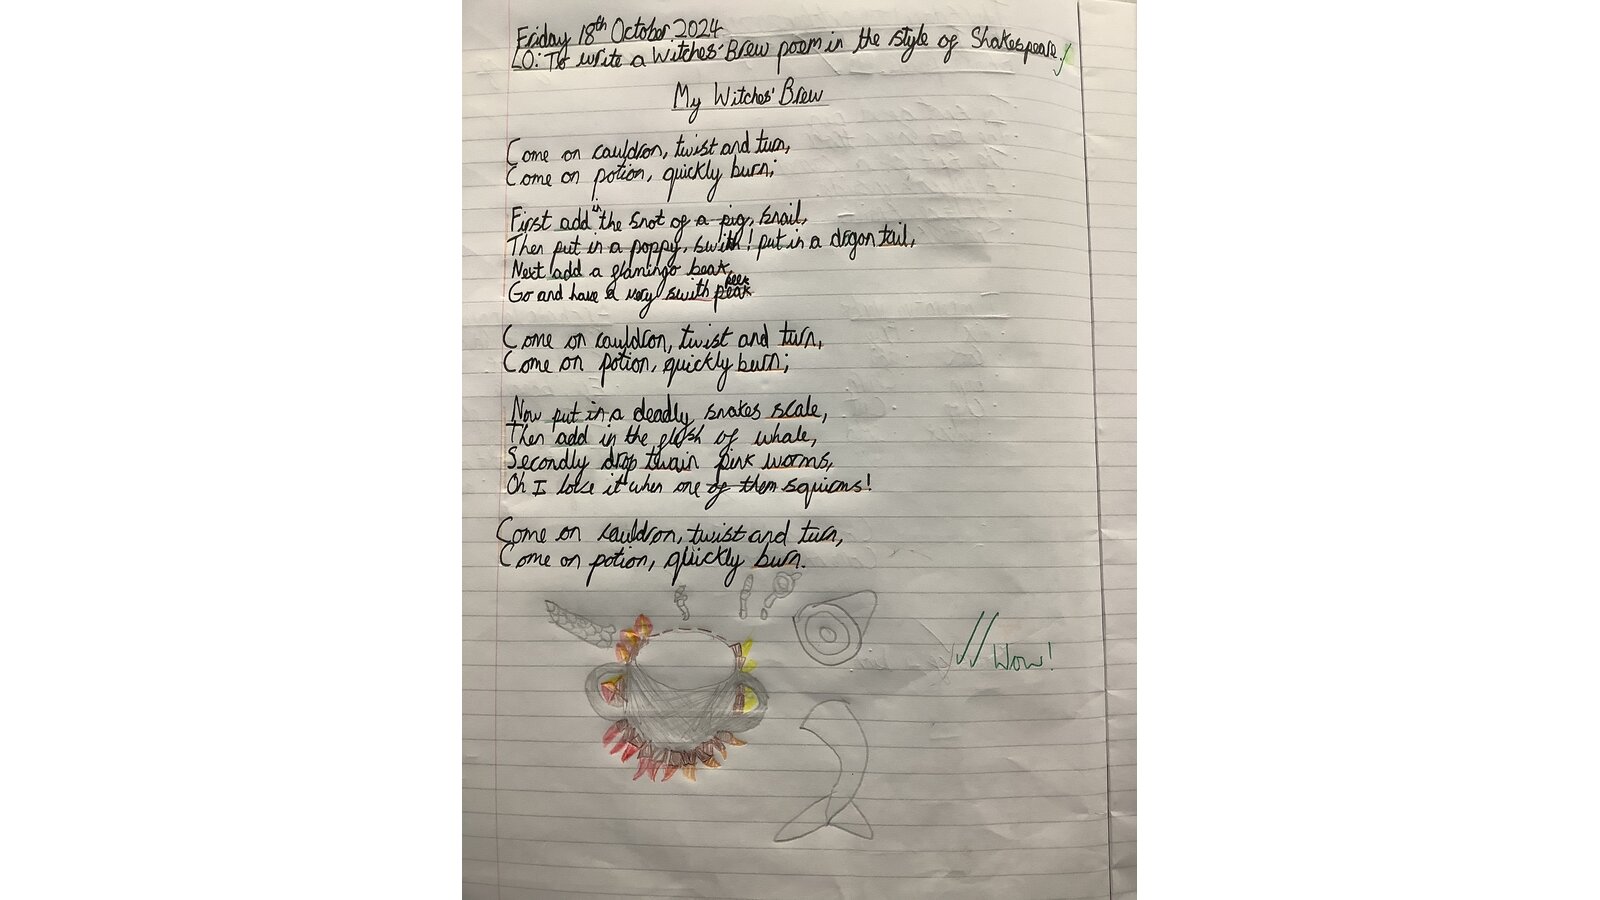 Friday 18th October 2024
LO: To write a Witches' Brew poem in the style of Shakespeare.
My Witches' Brew
Come on cauldron, twist and turn,
Come on potion, quickly burn;
First add in the snot of a pig, snail,
Then put in a poppy, swith! put in a drgon tail,
Next add a flamingo beak,
Go and have a very swith peek
Come on cauldron, twist and turn,
Come on potion, quickly burn;
Now put in a deadly snakes scale,
Then add in the flesh of whale,
Secondly drop twain pink worms,
Oh I love it when one of them squirms!
Come on cauldron, twist and turn,
Come on potion, quickly burn.
Wow!